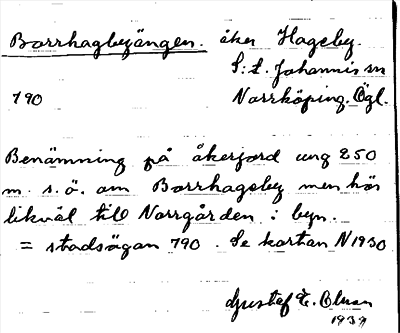 Borrhagbezängen. åker Hageby.
S:t. Johannis sn
790 Norrköping. Ögl.
Benämning på åkerjord ung 250
m. s. ö. om Borrhagsbey men hör
likväl till Norrgården i byn.
= stadsägan 790. Se kartan N 1930
Gustaf E. Olsson
1939